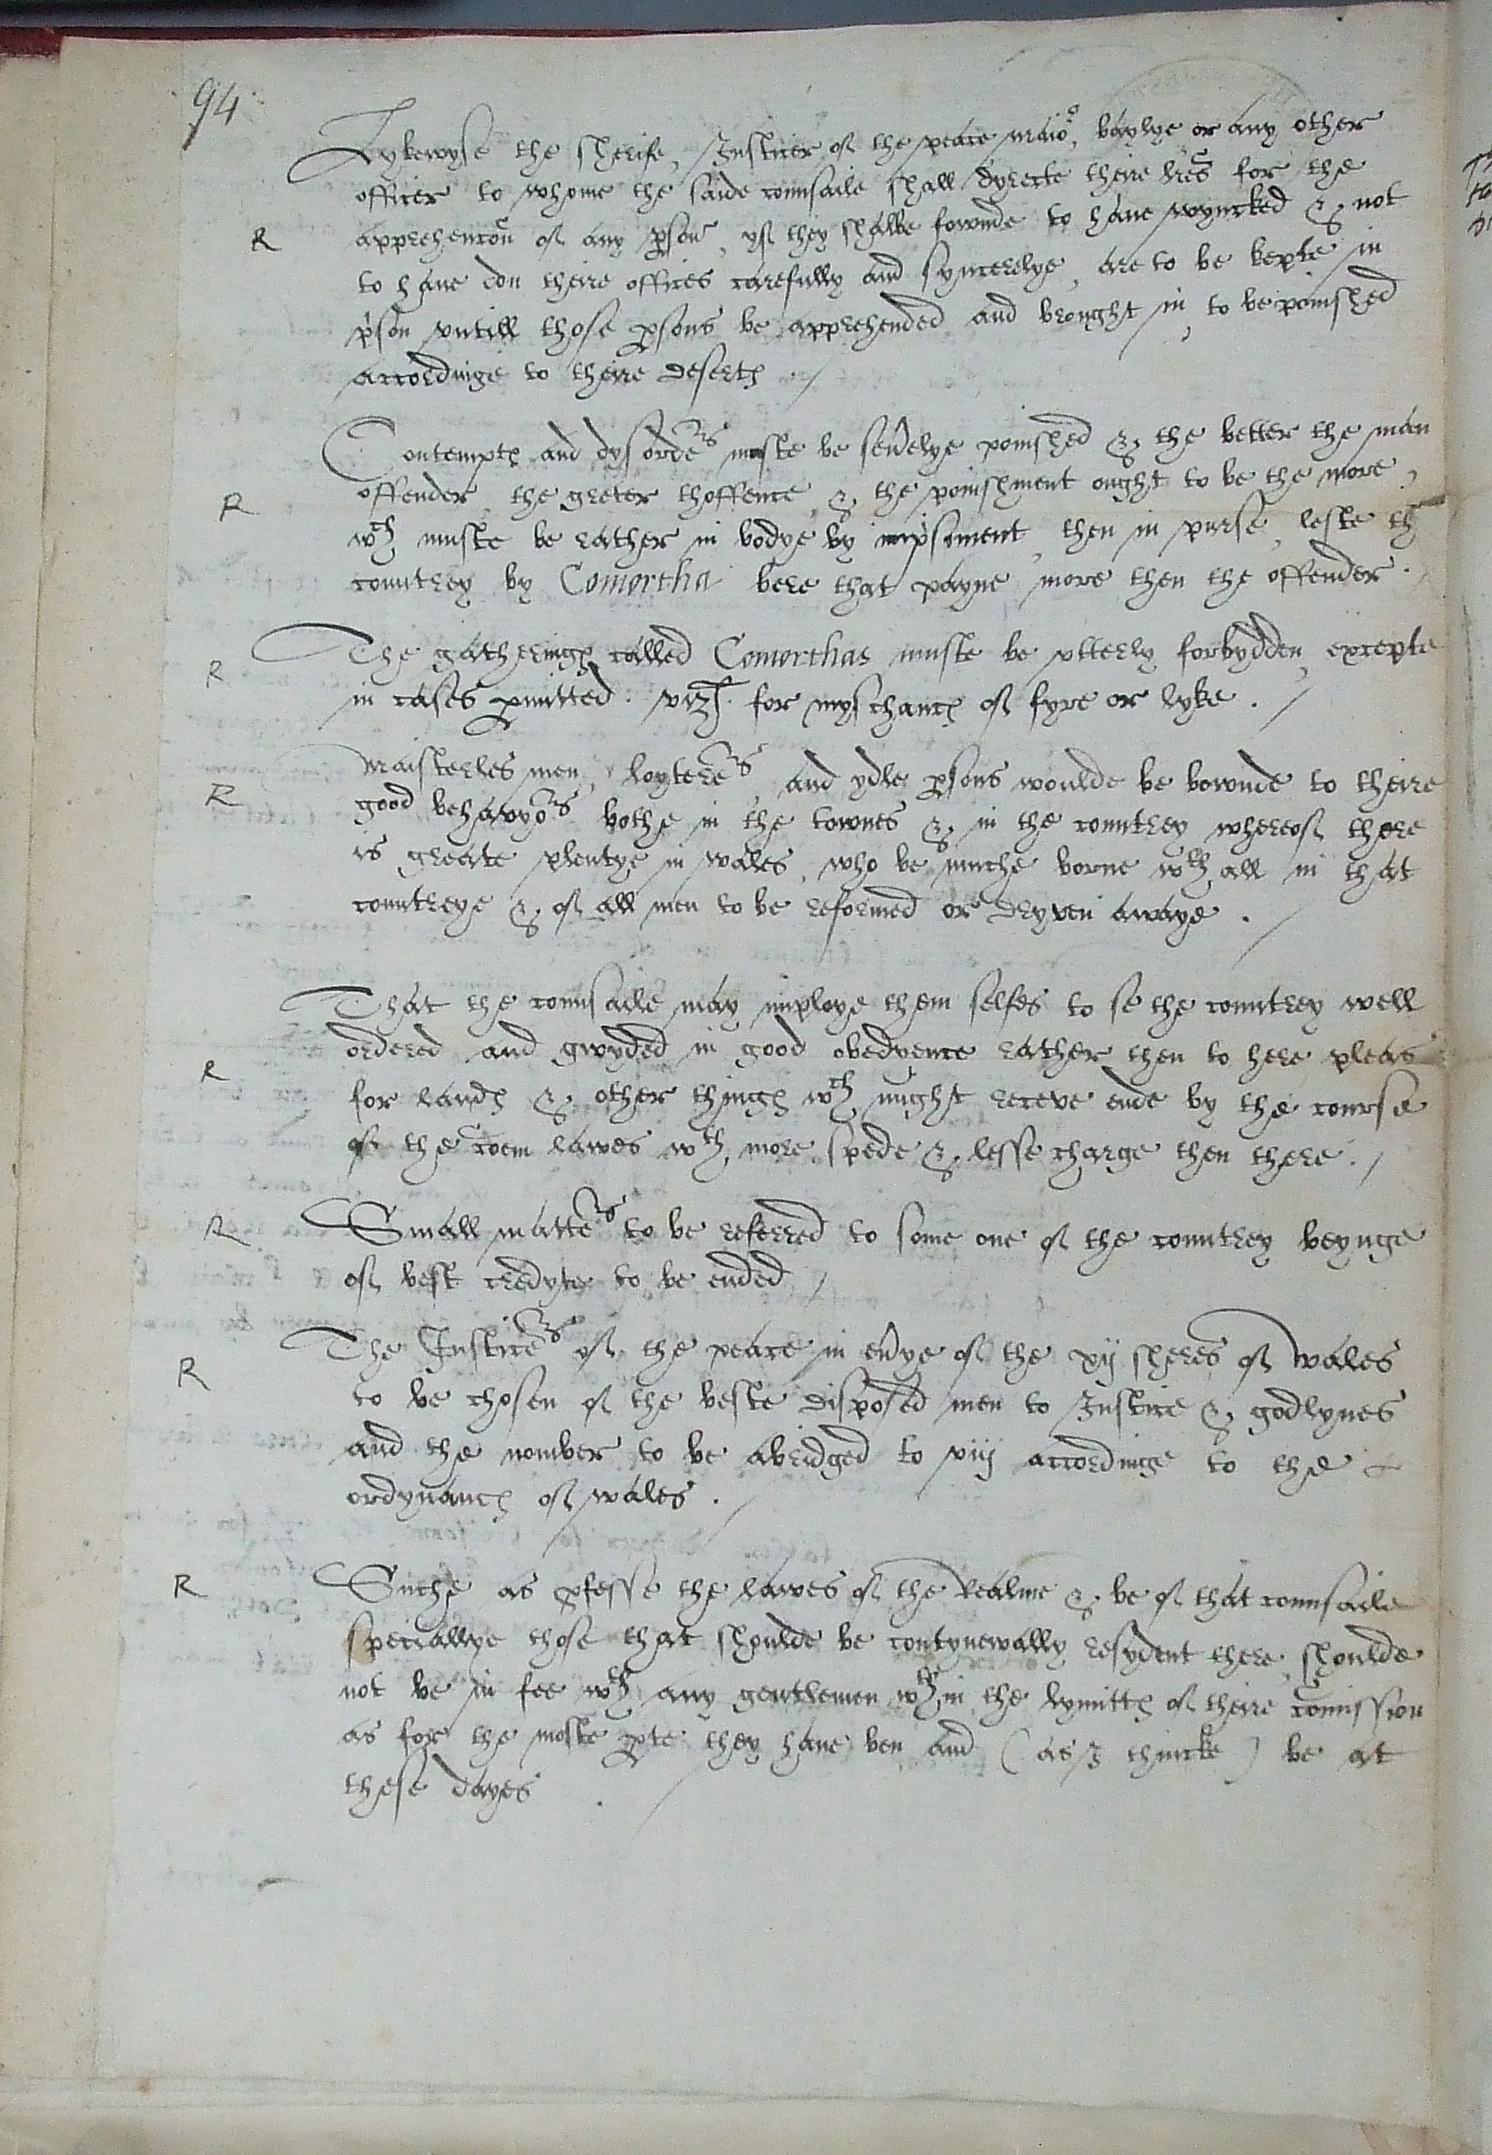 94
Lykewyse the sherife, Justicer of the peace maior, baylye or any other
officer to whome the saide counsaile shall dyrecte theire lres for the
R apprehencon of any pson, yf they shalbe fownde to haue wyncked & not
to haue don theire offices carefully and syncerelye, are to be kepte in
prison vntill those psons be apprehended and brought in, to be poinshed
accordinge to theire desertes ./
Contemptes and dysorders muste be seuelye poinshed & the better the man
R offender, the greter thoffence, & the poinshment ought to be the more,
wch muste be rather in bodye by imprisonment, then in purse, leste the
countrey by Comortha bere that payne more then the offender ./
R The gatheringes called Comorthas muste be vtterly forbydden, excepte
in cases pmitted . vizt for myschances of fyre or lyke ./
Maisterles men, loyterers, and ydle psons woulde be bownde to theire
R good behavyors bothe in the townes & in the countrey whereof there
is greate plentye in wales, who be muche borne wth all in that
countreye & of all men to be reformed or dryven awaye ./
That the counsaile may imploye them selfes to se the countrey well
ordered and gwyded in good obedyence rather then to here pleas
R for landes & other thinges wch might receve ende by the course
of the coem lawes wth more spede & lesse charge then there ./
R Small matters to be referred to some one of the countrey beynge
of best credyte to be ended /
The Justicers of the peace in euye of the xij sheres of wales
R to be chosen of the beste disposed men to Justice & godlynes
and the nomber to be abridged to viij accordinge to the
ordynances of wales ./
R Suche as pfesse the lawes of the Realme & be of that counsaile
speciallye those that shoulde be contynewally resydent there, shoulde
not be in fee wth any gentlemen wthin the lymittes of theire comission
as for the moste pte they haue ben and (as I thincke) be at
these dayes ./